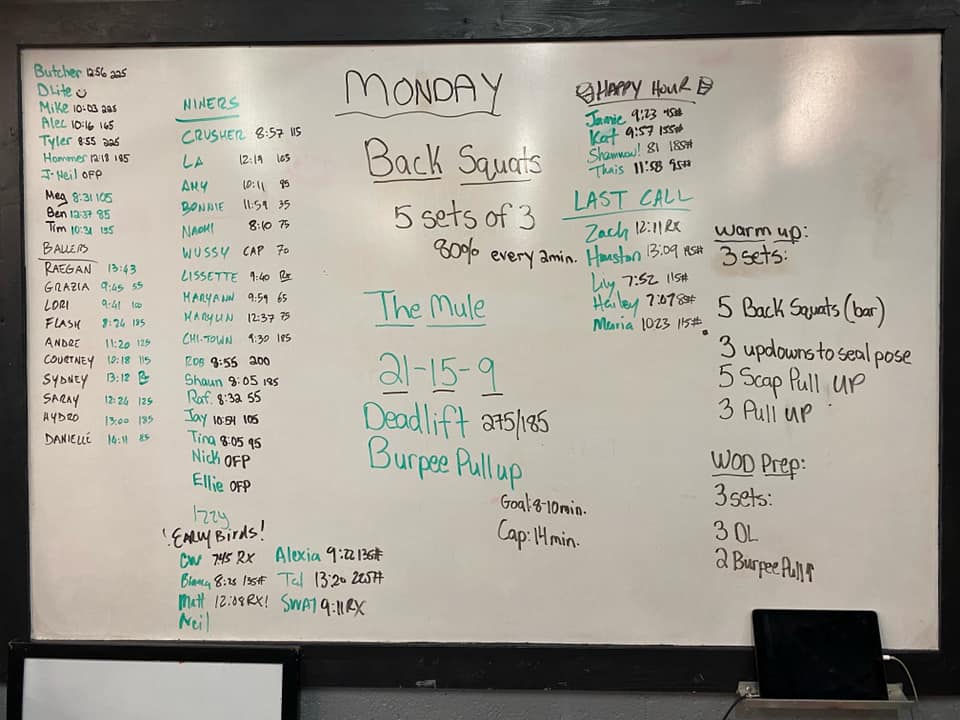 Butcher 12:56 225
DLite
Mike 10:03 225
Alec 10:16 165
Tyler 8:55 225
Hammer 12:18 185
J-Neil OFP
Meg 8:31 105
Ben 12:37 85
Tim 10:31 135
BALLERS
RAEGAN 13:43
GRAZIA 9:45 55
LORI 9:41 100
FLASH 8:26 185
ANDRE 11:20 125
COURTNEY 10:18 115
SYDNEY 13:12 Rx
SARAY 12:26 125
HYDRO 13:00 185
DANIELLE 10:11 85
NINERS
CRUSHER 8:57 115
LA 12:19 105
AMY 10:11 95
BONNIE 11:59 35
NAOMI 8:10 75
WUSSY CAP 70
LISSETTE 9:40 Rx
MARYANN 9:59 65
MARYLIN 12:37 75
CHI-TOWN 9:30 185
ROB 8:55 200
Shaun 8:05 185
Raf. 8:32 55
Jay 10:54 105
Tina 8:05 95
Nick OFP
Ellie OFP
Izzy
EARLY BIRDS!
CW 7:45 RX
Bianca 8:25 135#
Matt 12:08 RX!
Neil
Alexia 9:22 135#
Tal 13:20 225#
SWAT 9:11 RX
MONDAY
Back Squats
5 sets of 3
80% every 2min.
The Mule
21-15-9
Deadlift 275/185
Burpee Pull up
Goal: 8-10min.
Cap: 14min.
HAPPY HOUR
Jamie 9:23 95#
Kat 9:57 155#
Shannow! 81 185#
Thais 11:58 95#
LAST CALL
Zach 12:11 RX
Houston 13:09
Lily 7:52 115#
Hailey 7:07 83#
Maria 10:23 115#
warm up:
3 sets:
5 Back Squats (bar)
3 updowns to seal pose
5 Scap Pull UP
3 Pull UP
WOD Prep:
3 sets:
3 DL
2 Burpee Pull↑